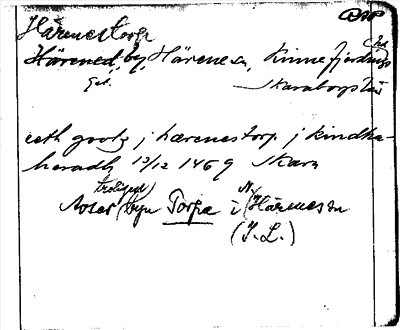 DMP
Härenestorp
Härened, by, Härene sn, Kinne fjärdings hd
Skaraborgs län
ceth gotz j hærenestorp j kindha-
heradh 13/12 1469 Skara
Avser (troligen) byn Torpa i N. Härene sn
(I. L.)